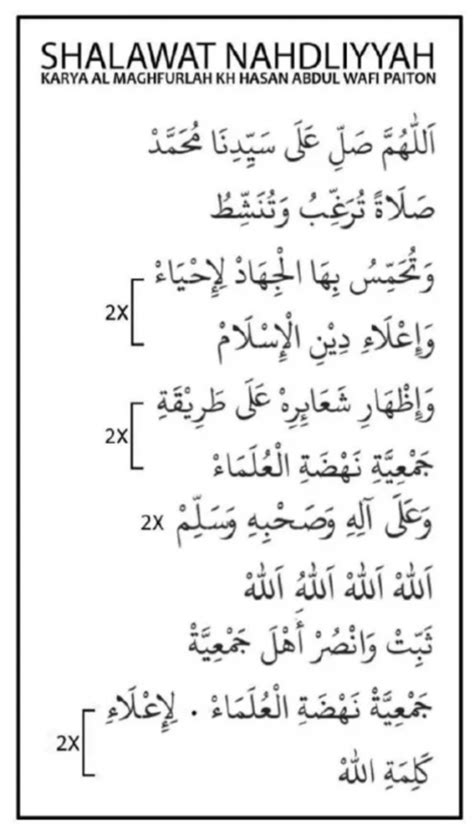 SHALAWAT NAHDLIYYAH
KARYA AL MAGHFURLAH KH HASAN ABDUL WAFI PAITON
اَللّٰهُمَّ صَلِّ عَلَى سَيِّدِنَا مُحَمَّدْ
صَلَاةً تُرَغِّبُ وَتُنَشِّطُ
وَتُحَمِّسُ بِهَا الْجِهَادْ لِإِحْيَاءْ
2X
وَإِعْلَاءِ دِيْنِ الْإِسْلَامْ
وَإِظْهَارِ شَعَايِرِهْ عَلَى طَرِيْقَةِ
2X
جَمْعِيَّةِ نَهْضَةِ الْعُلَمَاءْ
وَعَلَى آلِهِ وَصَحْبِهِ وَسَلِّمْ 2X
اَللّٰهْ اَللّٰهْ اَللّٰهُ اَللّٰهْ
ثَبِّتْ وَانْصُرْ أَهْلَ جَمْعِيَّةْ
جَمْعِيَّةْ نَهْضَةِ الْعُلَمَاءْ . لِإِعْلَاءِ
2X
كَلِمَةِ اللّٰهْ